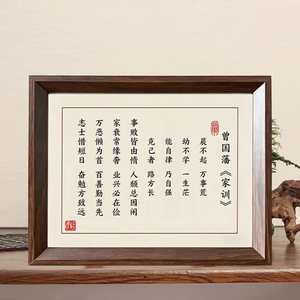 曾国藩《家训》
晨不起 万事荒
幼不学 一生茫
能自律 乃自强
克己者 路方长
事败皆由惰 人颓总因闲
家衰常缘奢 业兴必在俭
万恶懒为首 百善勤当先
志士惜短日 奋勉方致远